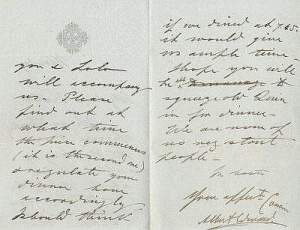 you & Lolo
will accompany
us. Please
find out at
what time
the piece commences
(it is the second one)
& regulate your
dinner hour
accordingly
I should think
if we dined at 7.45.
it would give
us ample time.
I hope you will
be able
to
squeeze down
in for dinner.
We are none of
us very stout
people.
In haste
Your affect Cousin
Albert